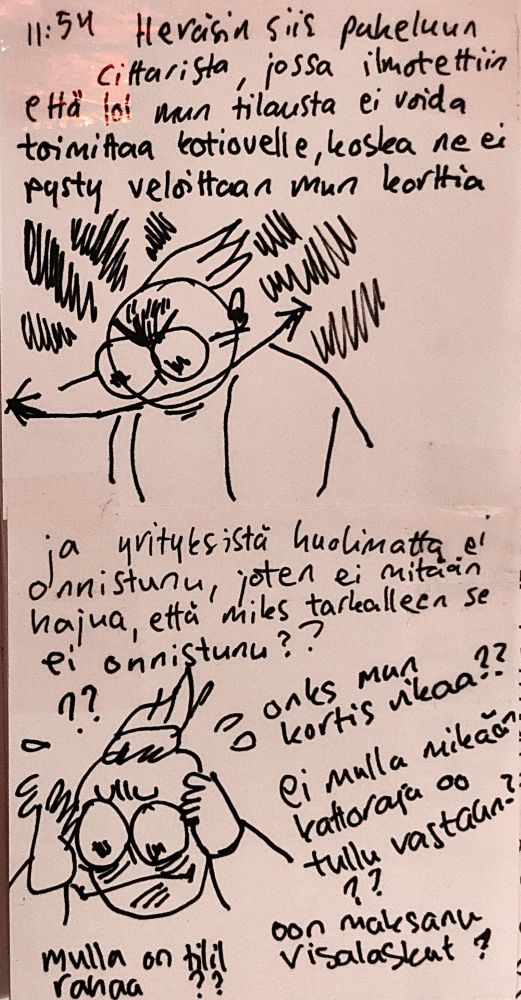 11:54 Heräsin siis puheluun
Cittarista, jossa ilmotettiin
että mun tilausta ei voida
toimittaa kotiovelle, koska ne ei
pysty veloittaan mun korttia
ja yrityksistä huolimatta ei
onnistunu, joten ei mitään
hajua, että miks tarkalleen se
ei onnistunu??
??
onks mun
kortis vikaa??
ei mulla mikään
kattoraja oo
tullu vastaan?
??
oon maksanu
visalaskut?
mulla on tilil
rahaa ??